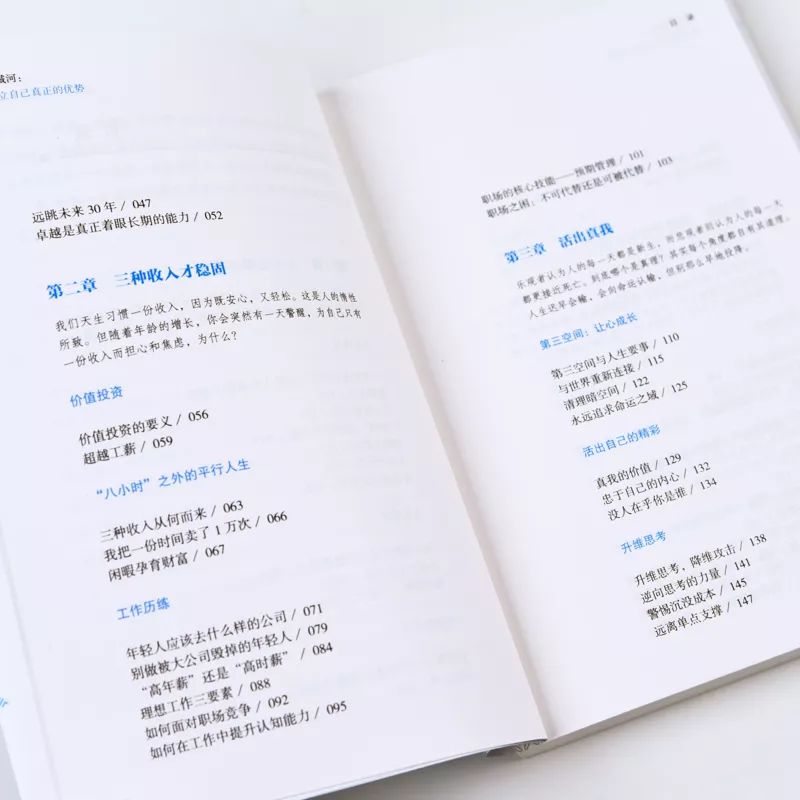 城河：
立自己真正的优势
远眺未来 30 年 / 047
卓越是真正着眼长期的能力 / 052
第二章　三种收入才稳固
我们天生习惯一份收入，因为既安心，又轻松。这是人的惰性
所致。但随着年龄的增长，你会突然有一天警醒，为自己只有
一份收入而担心和焦虑，为什么？
价值投资
价值投资的要义 / 056
超越工薪 / 059
“八小时”之外的平行人生
三种收入从何而来 / 063
我把一份时间卖了 1 万次 / 066
闲暇孕育财富 / 067
工作历练
年轻人应该去什么样的公司 / 071
别做被大公司毁掉的年轻人 / 079
“高年薪”还是“高时薪” / 084
理想工作三要素 / 088
如何面对职场竞争 / 092
如何在工作中提升认知能力 / 095
目 录
职场的核心技能——预期管理 / 101
职场之困：不可代替还是可被代替 / 103
第三章　活出真我
乐观者认为人的每一天都是新生，而悲观者则认为人的每一天
都更接近死亡。到底哪个是真理？其实每个角度都自有其道理。
人生迟早会输，会向命运认输，但别那么早地投降。
第三空间：让心成长
第三空间与人生要事 / 110
与世界重新连接 / 115
清理暗空间 / 122
永远追求命运之域 / 125
活出自己的精彩
真我的价值 / 129
忠于自己的内心 / 132
没人在乎你是谁 / 134
升维思考
升维思考，降维攻击 / 138
逆向思考的力量 / 141
警惕沉没成本 / 145
远离单点支撑 / 147